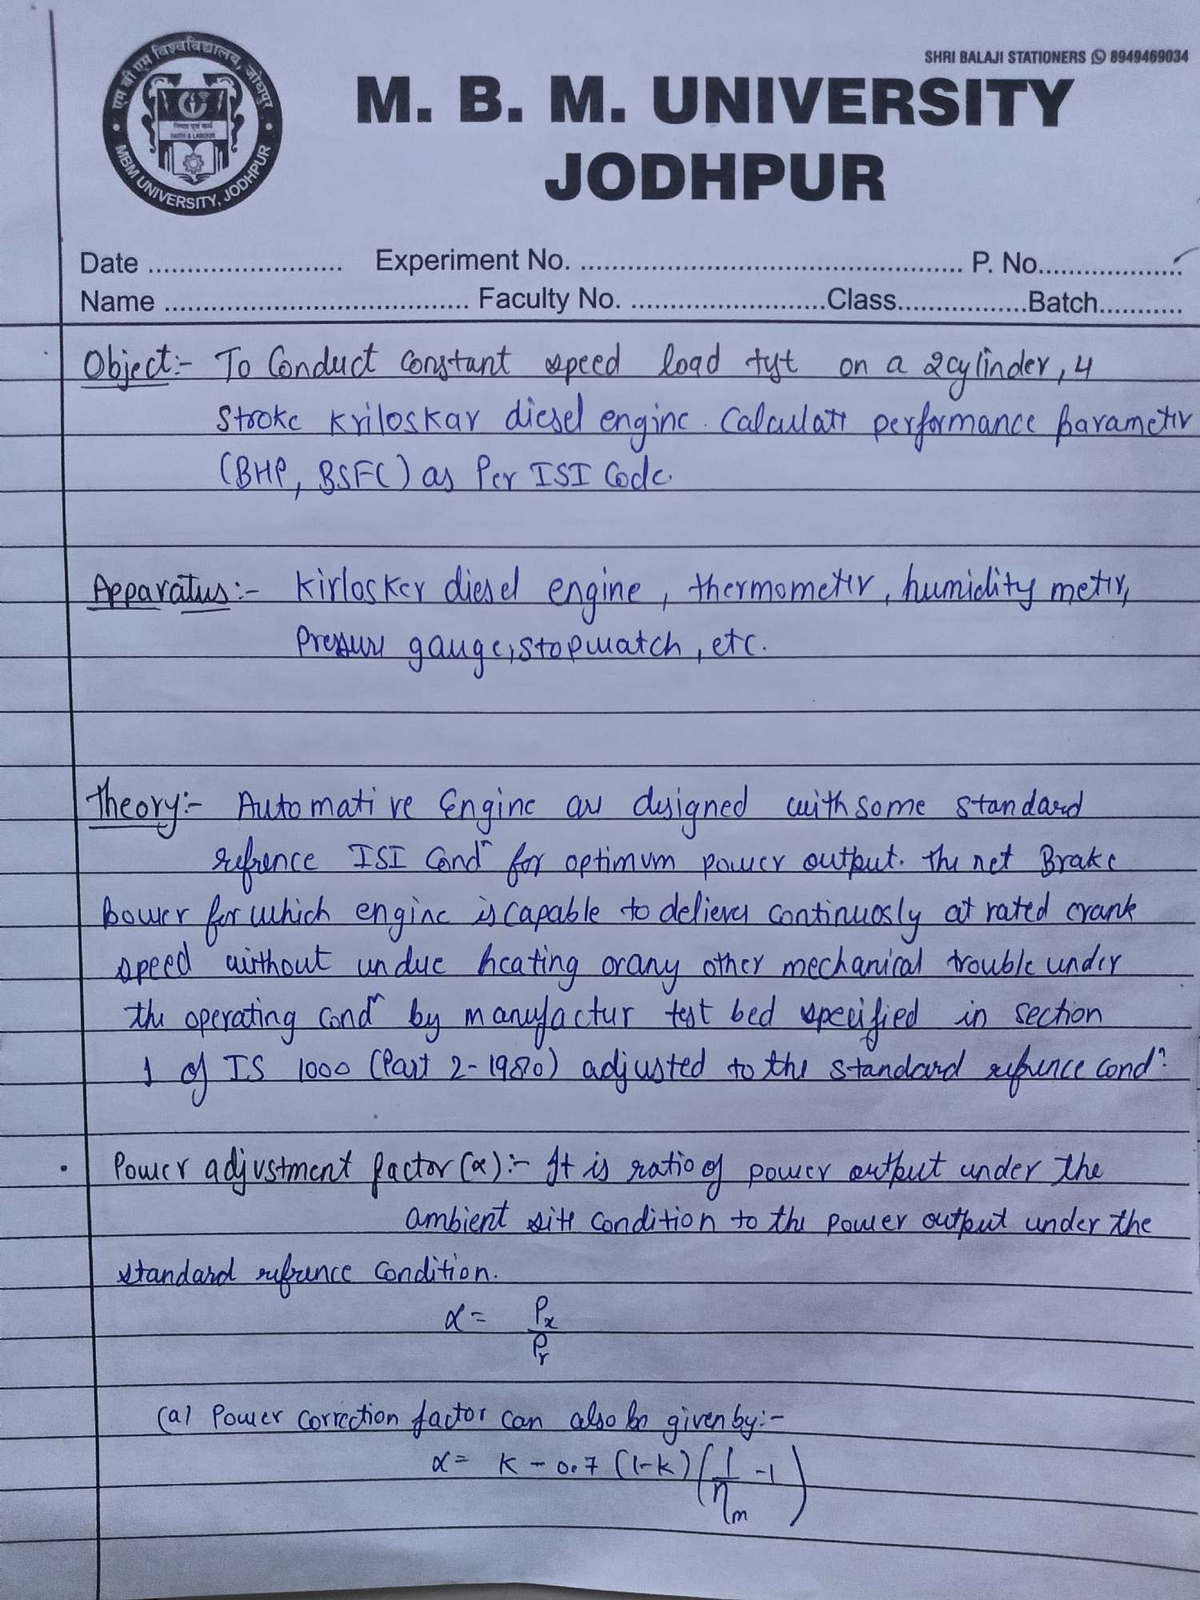 SHRI BALAJI STATIONERS 8949469034
एम बी एम विश्वविद्यालय, जोधपुर
FAITH & LABOUR
MBM UNIVERSITY, JODHPUR
M. B. M. UNIVERSITY
JODHPUR
Date .......................... Experiment No. .................................................. P. No...................
Name ....................................... Faculty No. ..........................Class.................Batch...........
Object:- To Conduct constant speed load tyt on a 2cylinder, 4
Stroke Kriloskar diesel engine. Calculate performance parameter
(BHP, BSFC) as Per ISI Code.
Apparatus:- Kirlosker diesel engine, thermometer, humidity meter,
Pressure gauge, stopwatch, etc.
Theory:- Automative Engine are designed with some standard
refrence ISI Condⁿ for optimum power output. The net Brake
power for which engine is capable to deliever continuosly at rated crank
speed without undue heating or any other mechanical trouble under
the operating condⁿ by manufactur test bed specified in section
1 of IS 1000 (Part 2-1980) adjusted to the standard refrence condⁿ.
Power adjustment factor (α):- It is ratio of power output under the
ambient site condition to the power output under the
standard refrence condition.
α = Px/Pr
(a) Power correction factor can also be given by:-
α = K - 0.7 (1-K) (1/ηm - 1)